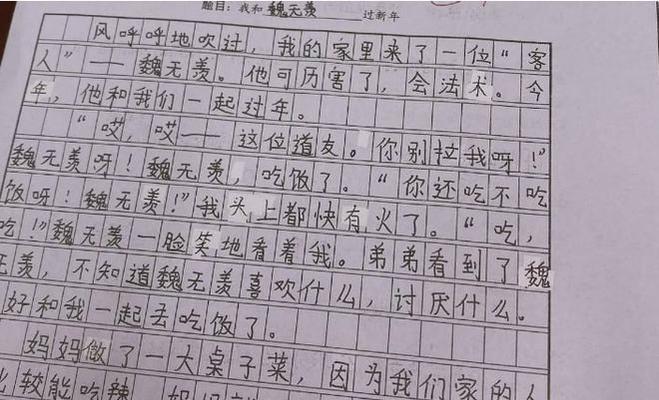 题目：我和魏无羡过新年
风呼呼地吹过，我的家里来了一位“客
人”——魏无羡。他可厉害了，会法术。今
年，他和我们一起过年。
“哎，哎——这位道友。你别拉我呀！”
魏无羡呀！魏无羡，吃饭了。“你还吃不吃
饭呀！魏无羡！”我头上都快有火了。“吃，
吃！”魏无羡一脸笑地看着我。弟弟看到了魏
无羡，不知道魏无羡喜欢什么，讨厌什么。
好和我一起去吃饭了。
妈妈做了一大桌子菜，因为我们家的人
比较能吃辣